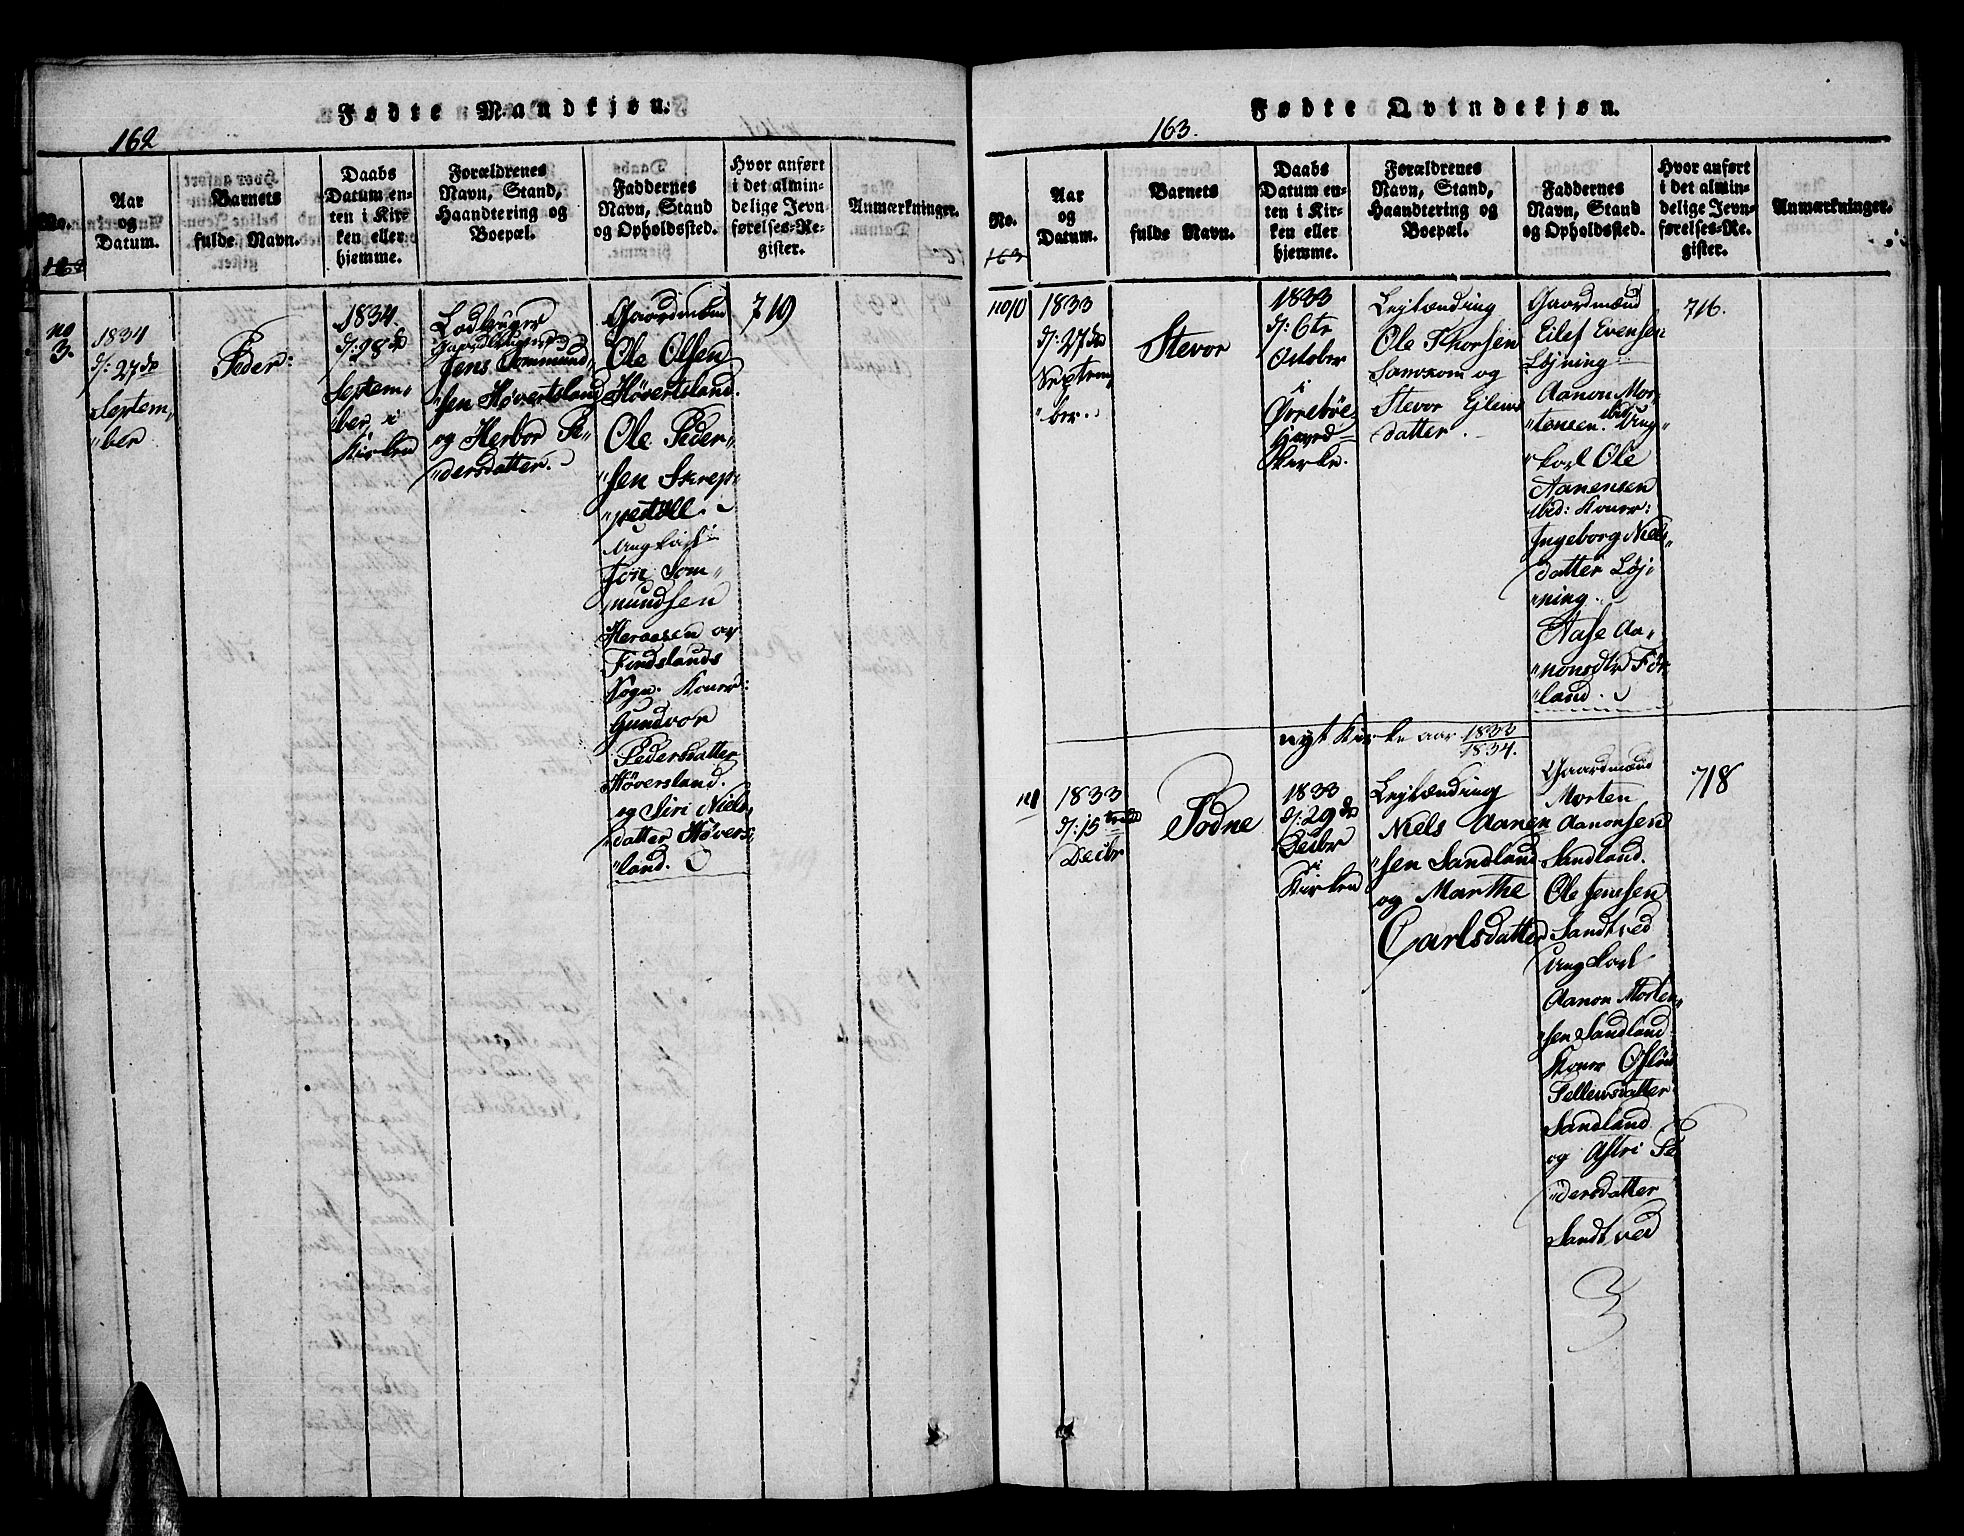 Fødte Mandkjøn.
162
No.
Aar
og
Datum.
Barnets
fulde Navn.
Daabs
Datum en-
ten i Kir-
ken eller
hjemme.
Forældrenes
Navn, Stand,
Haandtering og
Boepæl.
Faddernes
Navn, Stand
og Opholdssted.
Hvor anført
i det almin-
delige Jevn-
førelses-Re-
gister.
Anmærkninger.
no
3.
1834
d: 27de
Septem,
"ber
Peder:
1834
d: 28d
Septem-
ber, i
Kirken
Jens Sommund,
"sen Høvertsland
og Herbor Pe-
"dersdatter.
Gaardmænd
Ole Olsen
Høvertsland.
Ole Peder-
"sen Skrep-
"pestøll.
Ungkarl
Jon Som-
"mundsen
Heraasen av
Findslands
Sogn. Koner:
Gundvor
Pedersdatter
Høversland.
og Siri Niels-
datter Høvers-
"land.
719
Fødte Qvindekjøn.
163.
No.
163
Aar
og
Datum.
Barnets
fulde Navn.
Daabs
Datum en-
ten i Kir-
ken eller
hjemme.
Forældrenes
Navn, Stand,
Haandtering og
Boepæl.
Faddernes
Navn, Stand
og Opholdssted.
Hvor anført
i det almin-
delige Jevn-
førelses-Re-
gister.
Anmærkninger.
no10
1833
d: 27de
Septem,
"ber.
Stevor
1833
d: 6te
October
i
Øvrebøe
Hoved-
Kirke.
Lejlænding
Ole Thorsen
og
Stevor
datter.
Gaardmænd
Eilef Evensen
Løjning
Aanon Mor-
"tensen ibid. Ung-
"karl Ole
Aanensen
ibid: Koner:
Ingeborg Niels-
datter Løj-
"ning.
Aase Aa-
"nonsdtr
"land.
716.
nyt Kirke aar 1833
1834.
n1
1833
d: 15
Decbr
Todne
1833
d: 29de
Decbr
i
Kirken
Lejlænding
Niels Aanen
"sen Sandland
og Marthe
Carlsdatter
Gaardmænd
Morten
Aanonsen
Sandland.
Ole Jensen
Sandtved
Ungkarl
Aanon Morten-
"sen Sandland
Koner
Tellewsdatter
Sandland
og Astri Pe
"dersdatter
Sandtved
718